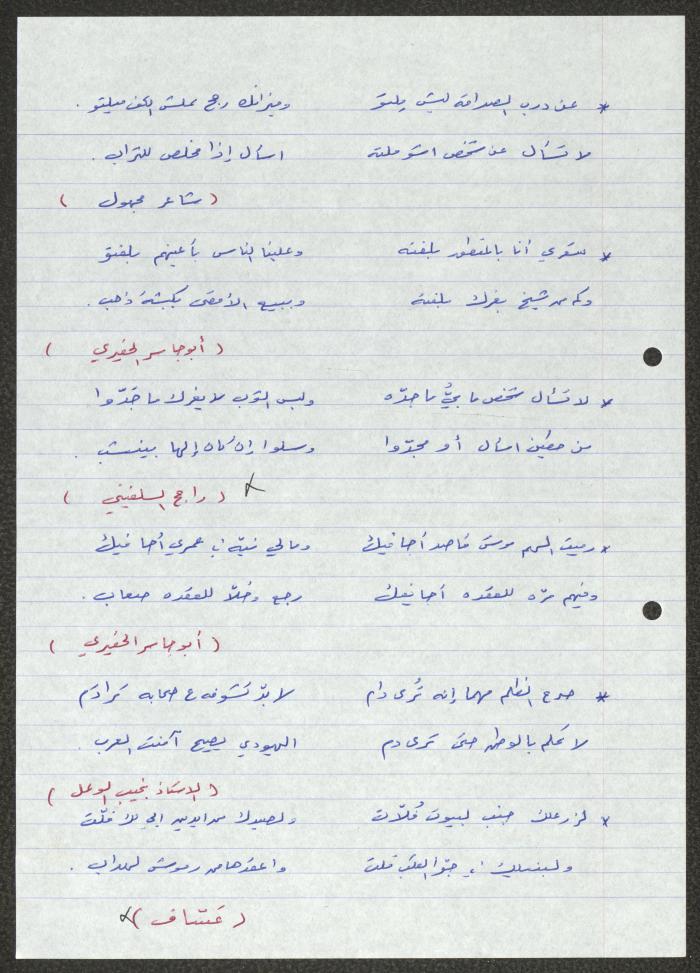 * عن درب الصداقة ليش ملتو وميزانك رجح علش الكف ميلتو .
لا تسأل عن شخص اشو ملته اسأل إذا مخلص للتراب .
( شاعر مجهول )
* شعري أنا بالمقطور بلفته وعلينا الناس بأعينهم بلفتو
وكم من شيخ بغرك بلفته وببيع الأقصى بكبشة ذهب .
( أبو جاسر الحفيري )
* لا تسأل شخص ما بيُّ ما جدّه ولبس الثوب لا يغرك ما جَدّوا
من حطين اسأل أو مجدّوا وسلوا إن كان إلها بينتسب .
( راجح السلفيتي )
* رميت السهم موش قاصد أجا فيك ومالي نيّة في عمري أجافيك
وفيهم مرّه للعقده أجا يفك رجع وخلّا للعقده صعاب .
( أبو جاسر الحفيري )
* صرح الظلم مهما إنه تُرى دام لا بدّ تشوف ع صحابه تردّم
لا تحلم بالوطن حتى ترى دم اليهودي يصيح آمنت العرب .
( الاستاذ نجيب الوعل )
* لزرعلك جنب لبيوت فُلّات ولصيدك من ايدين الي لك فلّت
ولبنيلك في جوّا القلب فلت واعقدها من رموش لهداب .
( عَتّساف )